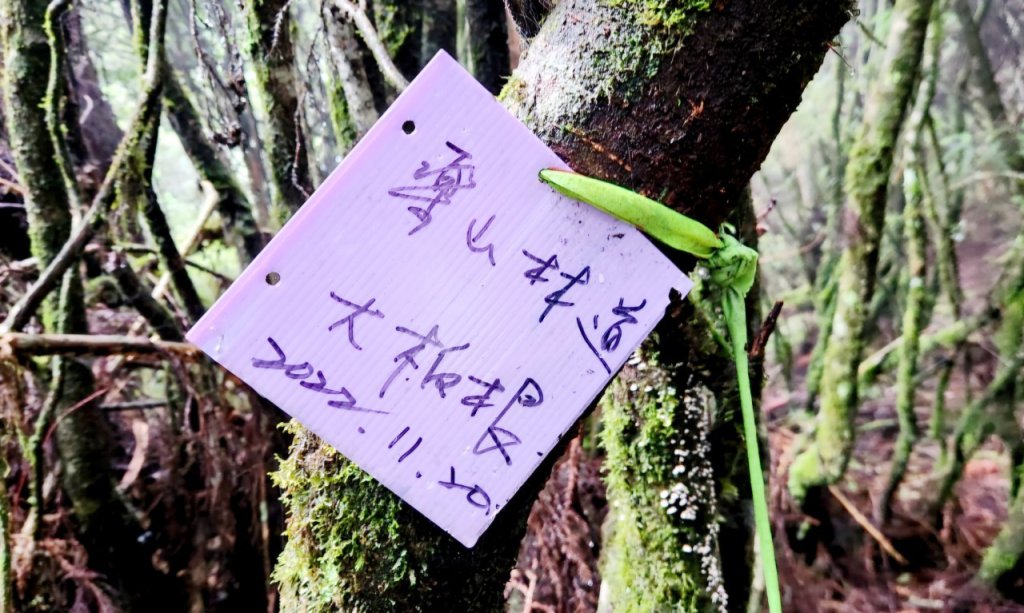 山林道
大板根
2022.11.20.